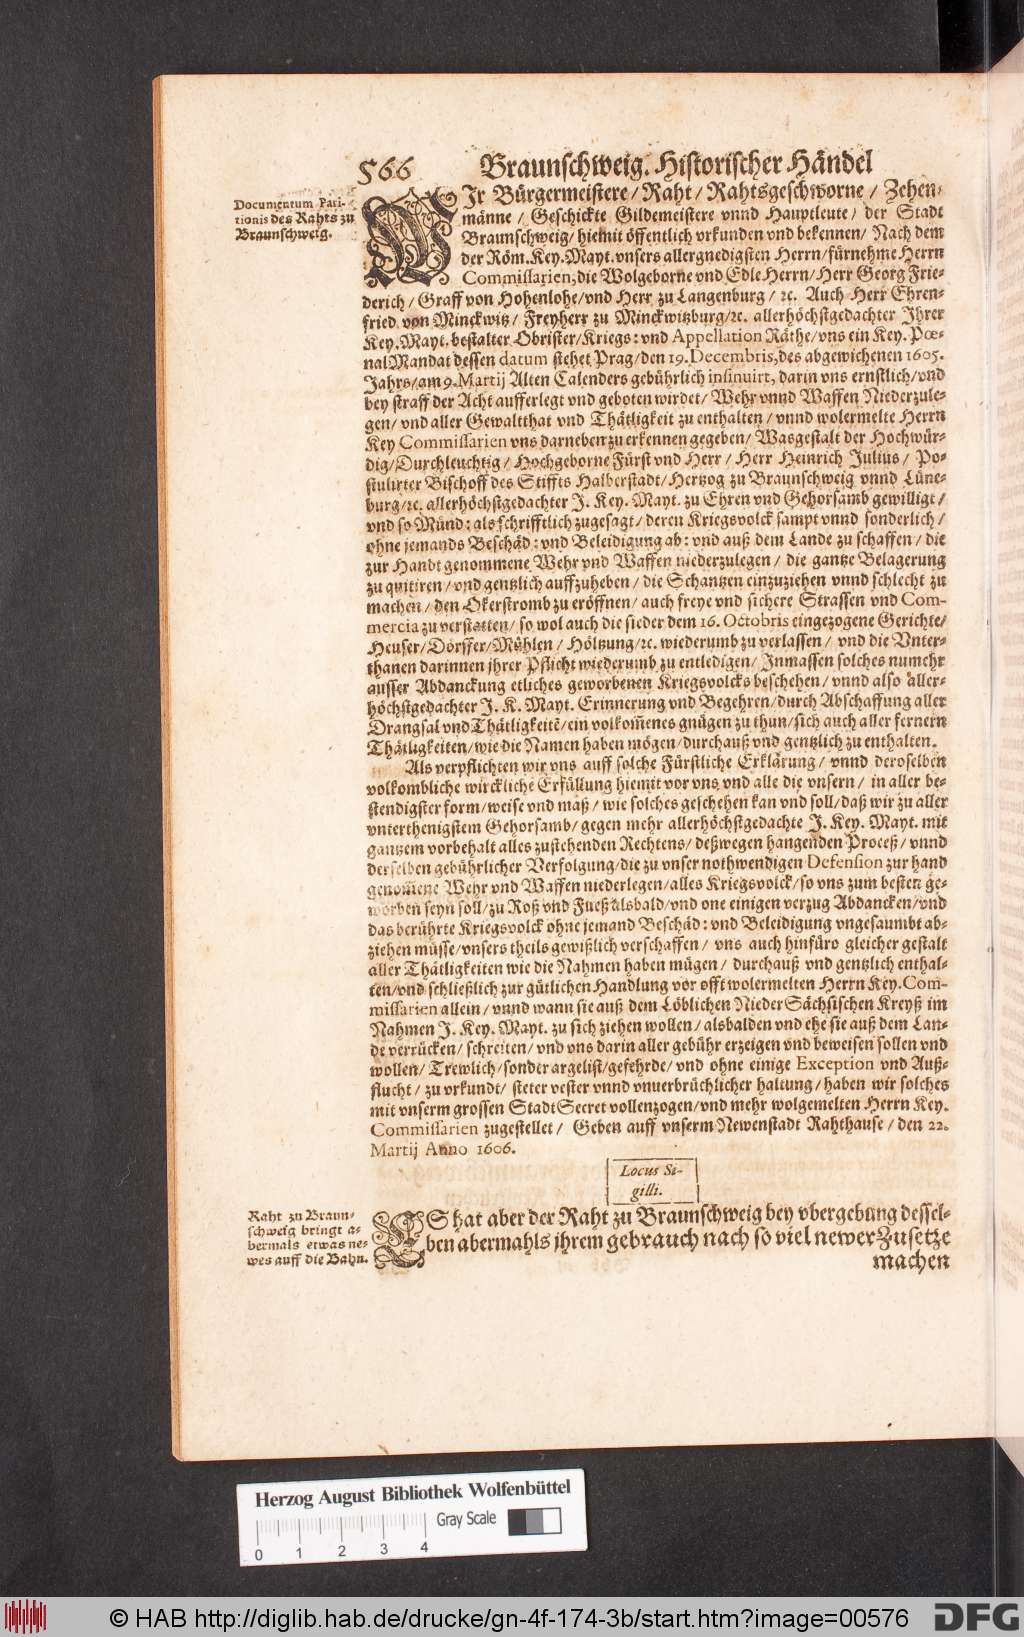 566 Braunschweig. Historischer Händel
Documentum Pari-
tionis des Rahts zu
Braunschweig.
WIr Bürgermeistere / Raht / Rahtsgeschworne / Zehen-
männe / Geschickte Gildemeistere vnnd Hauptleute / der Stadt
Braunschweig / hiemit öffentlich vrkunden vnd bekennen / Nach dem
der Röm. Key. Mayt. vnsers allergnedigsten Herrn / fürnehme Herrn
Commissarien, die Wolgeborne vnd Edle Herrn / Herr Georg Frie-
derich / Graff von Hohenlohe / vnd Herr zu Langenburg / ꝛc. Auch Herr Ehren-
fried von Minckwitz / Freyherr zu Minckwitzburg / ꝛc. allerhöchstgedachter Jhrer
Key. Mayt. bestalter Obrister / Kriegs: vnd Appellation Räthe / vns ein Key. Pœ-
nal Mandat dessen datum stehet Prag / den 19. Decembris, des abgewichenen 1605.
Jahrs / am 9. Martij Alten Calenders gebührlich insinuirt, darin vns ernstlich / vnd
bey straff der Acht aufferlegt vnd geboten wirdet / Wehr vnnd Waffen Niederzule-
gen / vnd aller Gewaltthat vnd Thätligkeit zu enthalten / vnnd wolermelte Herrn
Key Commissarien vns darneben zu erkennen gegeben / Wasgestalt der Hochwür-
dig / Durchleuchtig / Hochgeborne Fürst vnd Herr / Herr Heinrich Julius / Po-
stulirter Bischoff des Stiffts Halberstadt / Hertzog zu Braunschweig vnnd Lüne-
burg / ꝛc. allerhöchstgedachter J. Key. Mayt. zu Ehren vnd Gehorsamb gewilligt /
vnd so Münd: als schrifftlich zugesagt / deren Kriegsvolck sampt vnnd sonderlich /
ohne jemands Beschäd: vnd Beleidigung ab: vnd auß dem Lande zu schaffen / die
zur Handt genommene Wehr vnd Waffen niederzulegen / die gantze Belagerung
zu quitiren / vnd gentzlich auffzuheben / die Schantzen einzuziehen vnnd schlecht zu
machen / den Okerstromb zu eröffnen / auch freye vnd sichere Strassen vnd Com-
mercia zu verstatten / so wol auch die sieder dem 16. Octobris eingezogene Gerichte /
Heuser / Dörffer / Mühlen / Höltzung / ꝛc. wiederumb zu verlassen / vnd die Vnter-
thanen darinnen jhrer Pflicht wiederumb zu entledigen / Jnmassen solches numehr
ausser Abdanckung etliches geworbenen Kriegsvolcks beschehen / vnnd also aller-
höchstgedachter J. K. Mayt. Erinnerung vnd Begehren / durch Abschaffung aller
Drangsal vnd Thätligkeitē / ein volkom̄enes gnügen zu thun / sich auch aller fernern
Thätligkeiten / wie die Namen haben mögen / durchauß vnd gentzlich zu enthalten.
Als verpflichten wir vns auff solche Fürstliche Erklärung / vnnd deroselben
volkombliche wirckliche Erfüllung hiemit vor vns vnd alle die vnsern / in aller be-
stendigster form / weise vnd maß / wie solches geschehen kan vnd soll / daß wir zu aller
vnterthenigstem Gehorsamb / gegen mehr allerhöchstgedachte J. Key. Mayt. mit
gantzem vorbehalt alles zustehenden Rechtens / deßwegen hangenden Proceß / vnnd
derselben gebührlicher Verfolgung / die zu vnser nothwendigen Defension zur hand
genom̄ene Wehr vnd Waffen niederlegen / alles Kriegsvolck / so vns zum besten ge-
worben seyn soll / zu Roß vnd Fueß alsbald / vnd one einigen verzug Abdancken / vnd
das berührte Kriegsvolck ohne jemand Beschäd: vnd Beleidigung vngesaumbt ab-
ziehen müsse / vnsers theils gewißlich verschaffen / vns auch hinfüro gleicher gestalt
aller Thätligkeiten wie die Nahmen haben mügen / durchauß vnd gentzlich enthal-
ten / vnd schließlich zur gütlichen Handlung vor offt wolermelten Herrn Key. Com-
missarien allein / vnnd wann sie auß dem Löblichen NiederSächsischen Kreyß im
Nahmen J. Key. Mayt. zu sich ziehen wollen / alsbalden vnd ehe sie auß dem Lan-
de verrücken / schreiten / vnd vns darin aller gebühr erzeigen vnd beweisen sollen vnd
wollen / Trewlich / sonder argelist / gefehrde / vnd ohne einige Exception vnd Auß-
flucht / zu vrkundt / steter vester vnnd vnuerbrüchlicher haltung / haben wir solches
mit vnserm grossen StadtSecret vollenzogen / vnd mehr wolgemelten Herrn Key.
Commissarien zugestellet / Geben auff vnserm Newenstadt Rahthause / den 22.
Martij Anno 1606.
Locus Si-
gilli.
Raht zu Braun-
schweig bringt a-
bermals etwas ne-
wes auff die Bahn.
ES hat aber der Raht zu Braunschweig bey vbergebung dessel-
ben abermahls jhrem gebrauch nach so viel newer Zusetze
machen
Herzog August Bibliothek Wolfenbüttel
Gray Scale
0 1 2 3 4
© HAB http://diglib.hab.de/drucke/gn-4f-174-3b/start.htm?image=00576
DFG